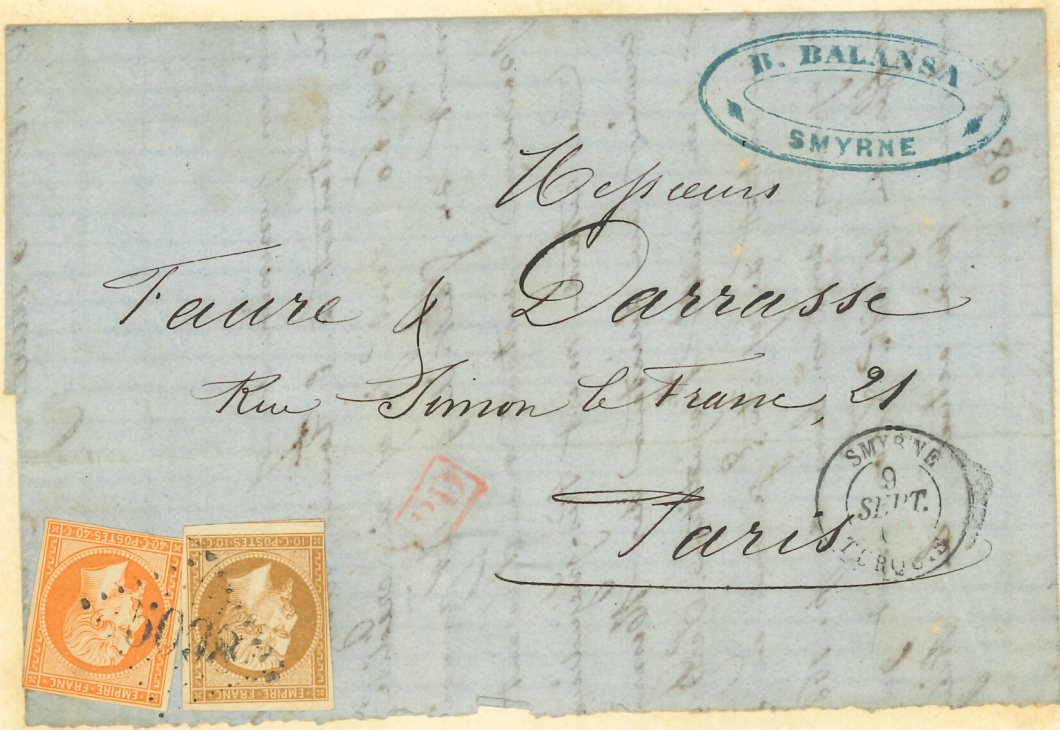 B. BALANSA
SMYRNE
Messieurs
Faure & Darrasse
Rue Simon le Franc, 21
Paris
PD
SMYRNE
9
SEPT.
TURQUIE
40·C·POSTES·40·C
EMPIRE·FRANC
10·C·POSTES·10·C
EMPIRE·FRANC